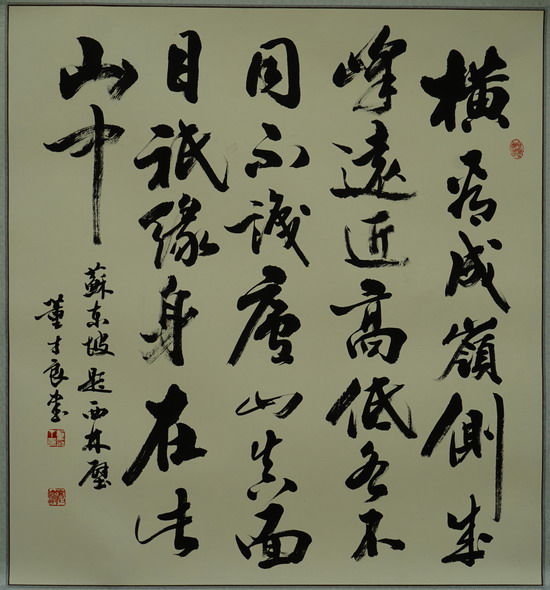 橫看成嶺側成
峰遠近高低各不
同不識廬山真面
目祇緣身在此
山中
蘇東坡題西林壁
董才良書